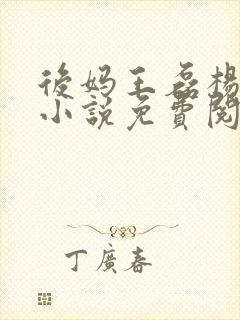 後妈王磊楊
小說免費閱
丁廣春